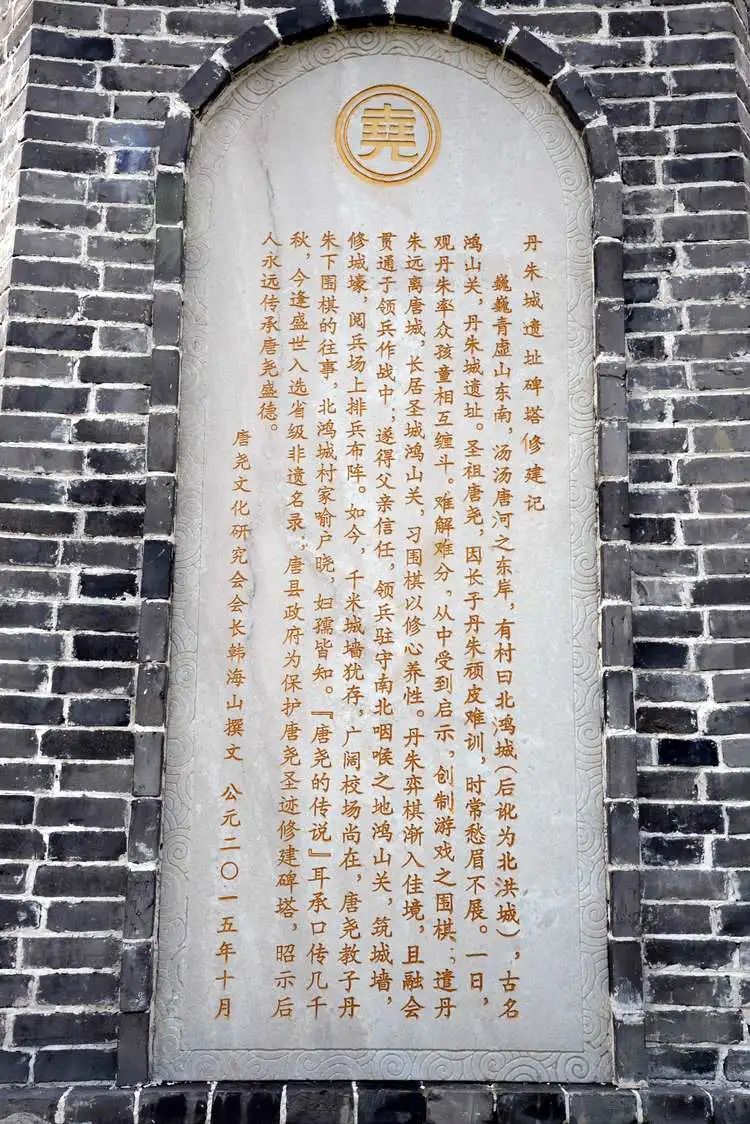 堯
丹朱城遗址碑塔修建记
巍巍青虚山东南，汤汤唐河之东岸，有村曰北鸿城（后讹为北洪城），古名
鸿山关，丹朱城遗址。圣祖唐尧，因长子丹朱顽皮难训，时常愁眉不展。一日，
观丹朱率众孩童相互缠斗。难解难分，从中受到启示，创制游戏之围棋；遣丹
朱远离唐城，长居圣城鸿山关，习围棋以修心养性。丹朱弈棋渐入佳境，且融会
贯通于领兵作战中；遂得父亲信任，领兵驻守南北咽喉之地鸿山关，筑城墙，
修城壕，阅兵场上排兵布阵。如今，千米城墙犹存，广阔校场尚在，唐尧教子丹
朱下围棋的往事，北鸿城村家喻户晓，妇孺皆知。『唐尧的传说』耳承口传几千
秋，今逢盛世入选省级非遗名录；唐县政府为保护唐尧圣迹修建碑塔，昭示后
人永远传承唐尧盛德。
唐尧文化研究会会长韩海山撰文 公元二〇一五年十月